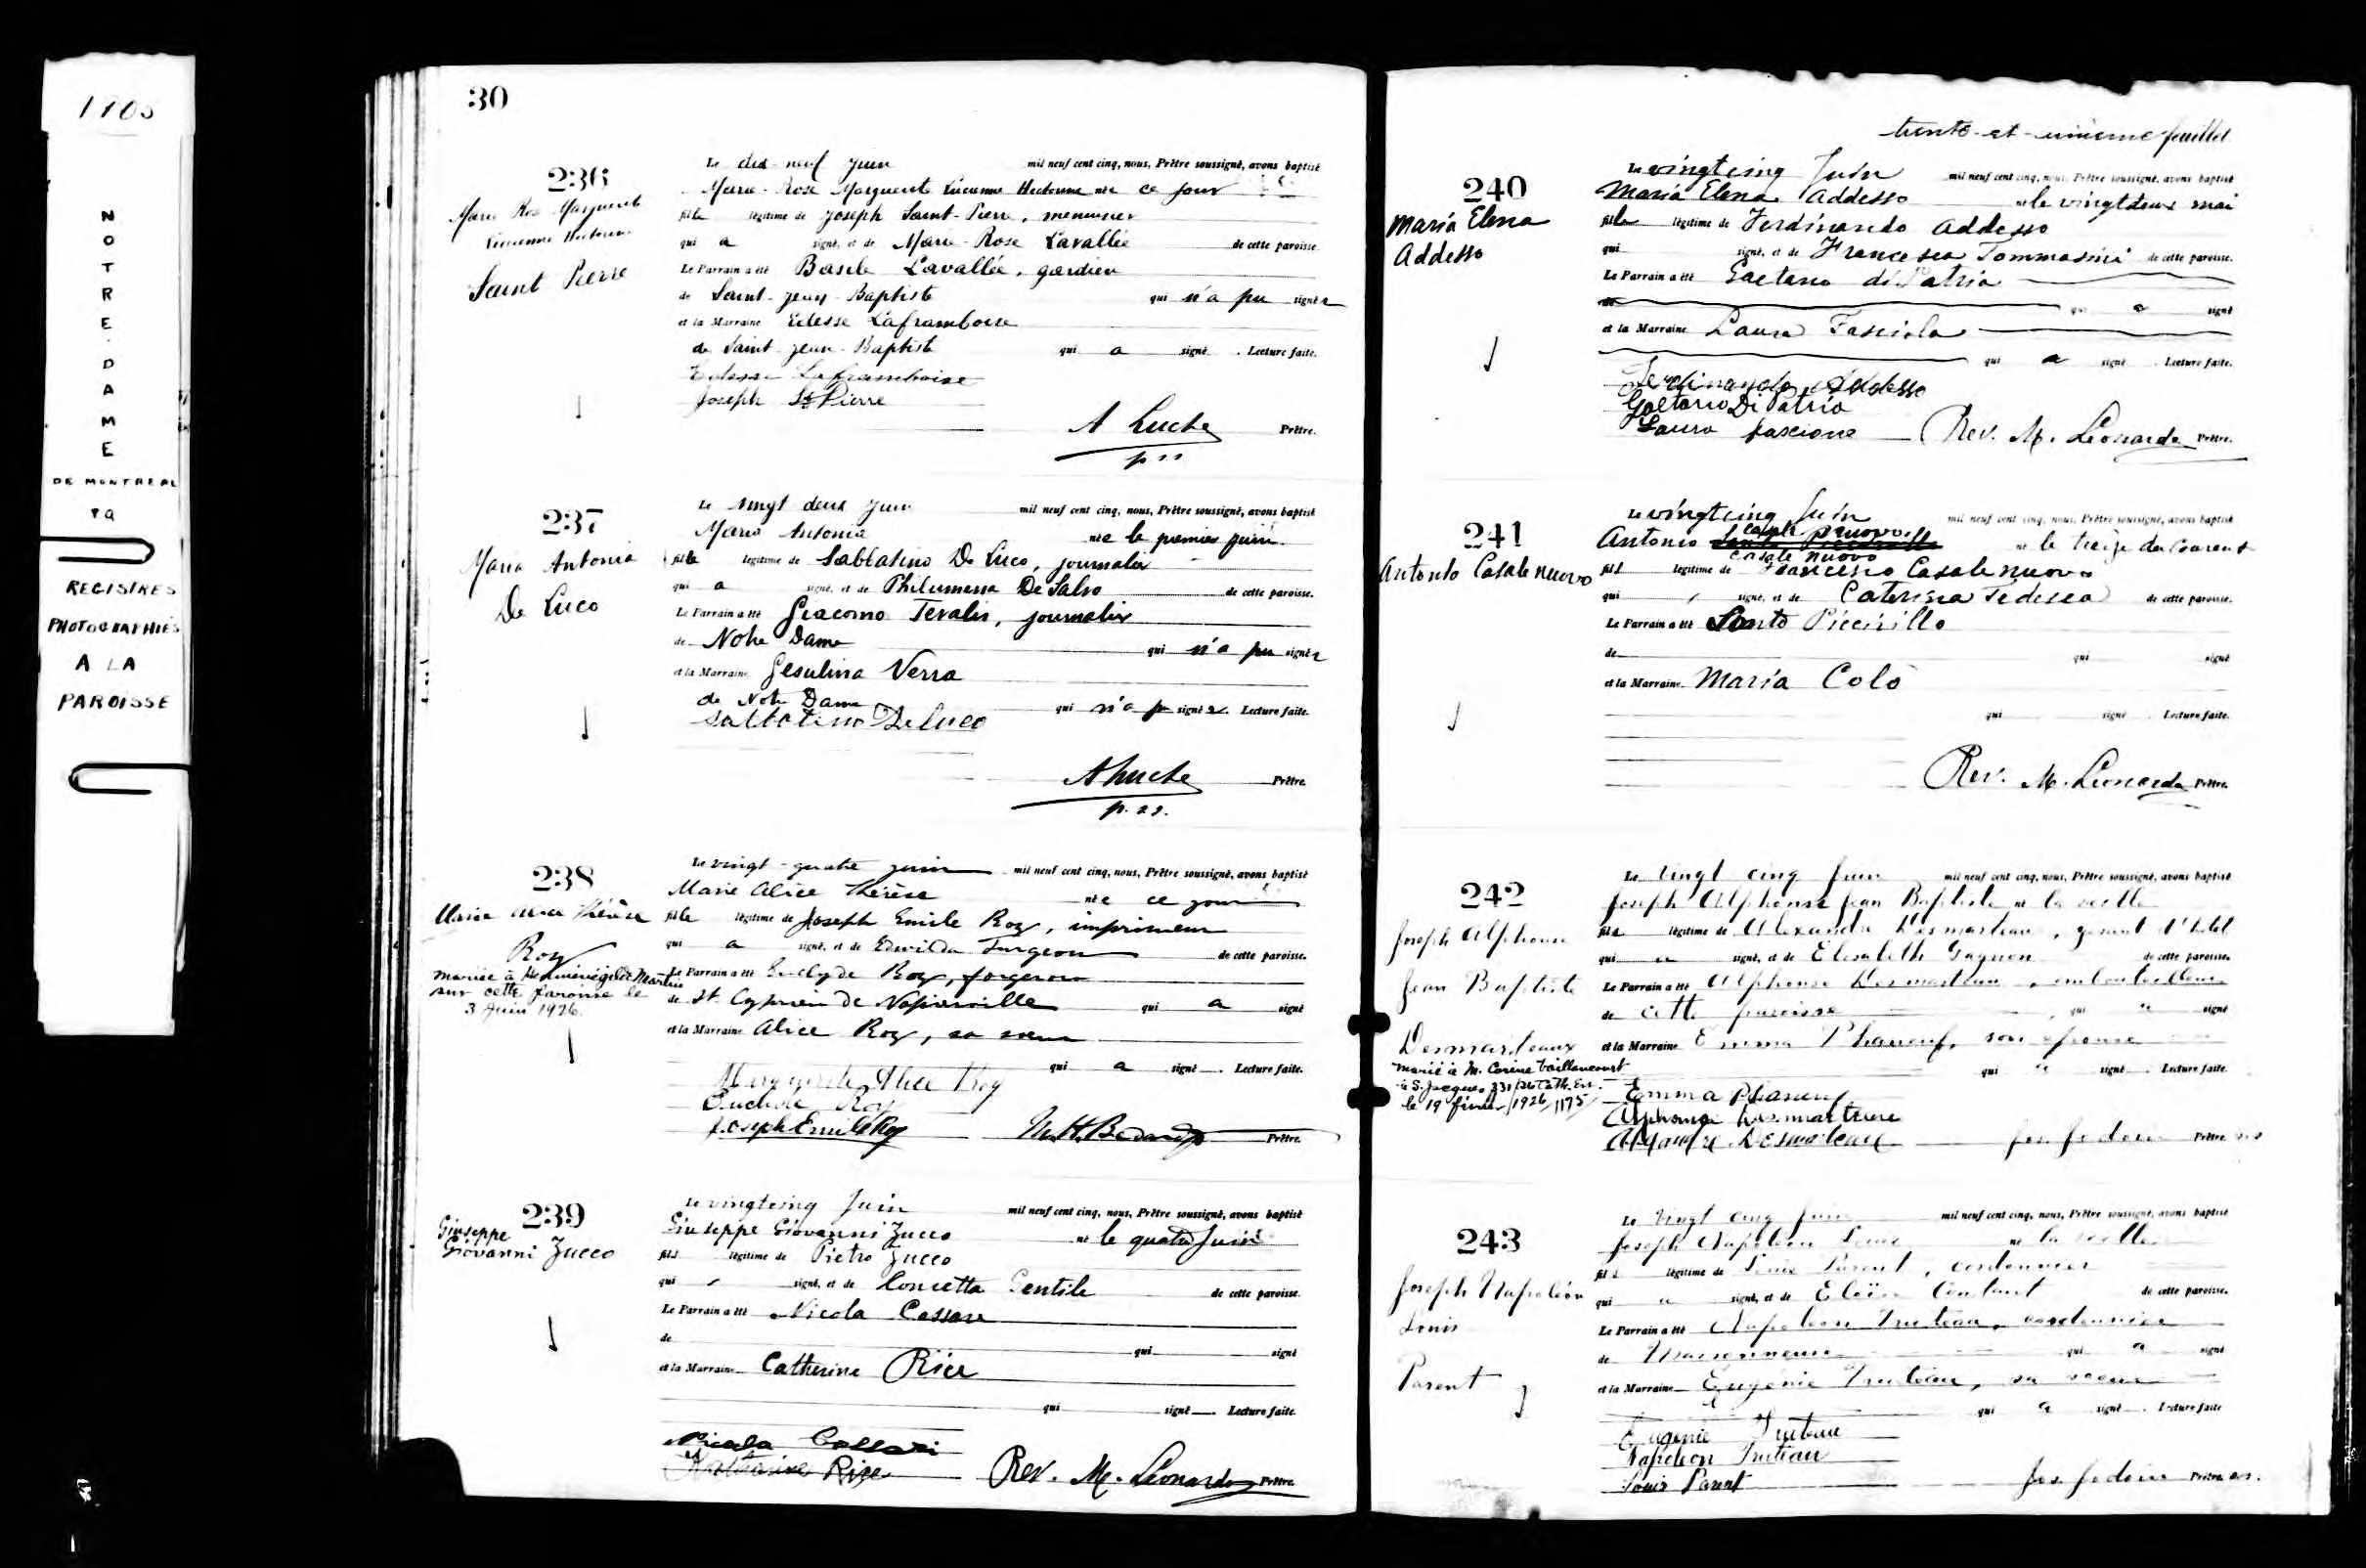 1905
NOTRE-DAME
DE MONTREAL
PQ
REGISTRES
PHOTOGRAPHIÉS
A LA
PAROISSE
30
236
Marie Rose Marguerite
Lucienne Hectorine
Saint Pierre
Le dix-neuf juin mil neuf cent cinq, nous, Prêtre soussigné, avons baptisé
Marie-Rose Marguerite Lucienne Hectorine née ce jour
fille légitime de Joseph Saint-Pierre, menuisier
qui a signé, et de Marie-Rose Lavallée de cette paroisse
Le Parrain a été Basile Lavallée, gardien
de Saint-Jean-Baptiste qui n'a pu signer
et la Marraine Edesse Laframboise
de Saint-Jean-Baptiste qui a signé. Lecture faite.
Edesse Laframboise
Joseph St Pierre
A Luche Prêtre.
237
Maria Antonia
De Luco
Le vingt deux juin mil neuf cent cinq, nous, Prêtre soussigné, avons baptisé
Maria Antonia née le premier juin
fille légitime de Sabbatino De Luco, journalier
qui a signé, et de Philumena De Salvo de cette paroisse.
Le Parrain a été Giacomo Tevalis, journalier
de Notre Dame qui n'a pu signer
et la Marraine Gesulina Verra
de Notre Dame qui n'a p signer. Lecture faite.
Sabbatino Deluco
A Luche Prêtre.
238
Marie Alice Thérèse
Roy
mariée à Herménégilde Martin
sur cette paroisse le
3 Juin 1926.
Le vingt-quatre juin mil neuf cent cinq, nous, Prêtre soussigné, avons baptisé
Marie Alice Thérèse née ce jour
fille légitime de Joseph Emile Roy, imprimeur
qui a signé, et de Edwilda Turgeon de cette paroisse.
Le Parrain a été Euclyde Roy, forgeron
de St. Cyprien de Napierville qui a signé
et la Marraine Alice Roy, sa soeur
qui a signé. Lecture faite.
Marguerite Alice Roy
Euclide Roy
Joseph Emile Roy Prêtre.
239
Giuseppe
Giovanni Zucco
Le vingtcinq Juin mil neuf cent cinq, nous, Prêtre soussigné, avons baptisé
Giuseppe Giovanni Zucco né le quatre Juin
fils légitime de Pietro Zucco
qui signé, et de Concetta Gentile de cette paroisse.
Le Parrain a été Nicola Cassare
de qui signé
et la Marraine Catherine Rice
qui signé. Lecture faite.
Nicola Cassari
Katharine Rice Rev. M. Leonardo Prêtre.
trente-et-unième feuillet
240
Maria Elena
Addesso
Le vingtcinq Juin mil neuf cent cinq, nous, Prêtre soussigné, avons baptisé
Maria Elena Addesso née le vingtdeux mai
fille légitime de Ferdinando Addesso
qui signé, et de Francesca Tommasini de cette paroisse.
Le Parrain a été Gaetano di Patria
de qui a signé
et la Marraine Laura Fasciola
qui a signé. Lecture faite.
Ferdinando Addesso
Gaetano Di Patria
Laura Fascione Rev. M. Leonardo Prêtre.
241
Antonio Casalenuovo
Le vingtcinq Juin mil neuf cent cinq, nous, Prêtre soussigné, avons baptisé
Antonio Casale nuovo né le treize du courent
Casale nuovo
fils légitime de Francesco Casalenuovo
qui signé, et de Caterina Tedesca de cette paroisse.
Le Parrain a été Santo Piccirillo
de qui signé
et la Marraine Maria Colò
qui signé. Lecture faite.
Rev. M. Leonardo Prêtre.
242
Joseph Alphonse
Jean Baptiste
Desmarteaux
marié à M. Corine Vaillancourt
à S. Jacques
le 19 février 1926
Le vingt cinq Juin mil neuf cent cinq, nous, Prêtre soussigné, avons baptisé
Joseph Alphonse Jean Baptiste né la veille
fils légitime de Alexandre Desmarteau, gérant d'hôtel
qui a signé, et de Elisabeth Gagnon de cette paroisse.
Le Parrain a été Alphonse Desmarteau, embouteilleur
de cette paroisse, qui a signé
et la Marraine Emma Phaneuf, son épouse
qui a signé. Lecture faite.
Emma Phaneuf
Alphonse Desmarteau
Alexandre Desmarteau Prêtre
243
Joseph Napoléon
Louis
Parent
Le vingt cinq juin mil neuf cent cinq, nous, Prêtre soussigné, avons baptisé
Joseph Napoléon Louis né la veille
fils légitime de Louis Parent, cordonnier
qui a signé, et de Eloïse Contant de cette paroisse.
Le Parrain a été Napoléon Truteau, cordonnier
de Maisonneuve qui a signé
et la Marraine Eugénie Truteau, sa soeur
qui a signé. Lecture faite
Eugenie Truteau
Napoleon Truteau
Louis Parent Prêtre